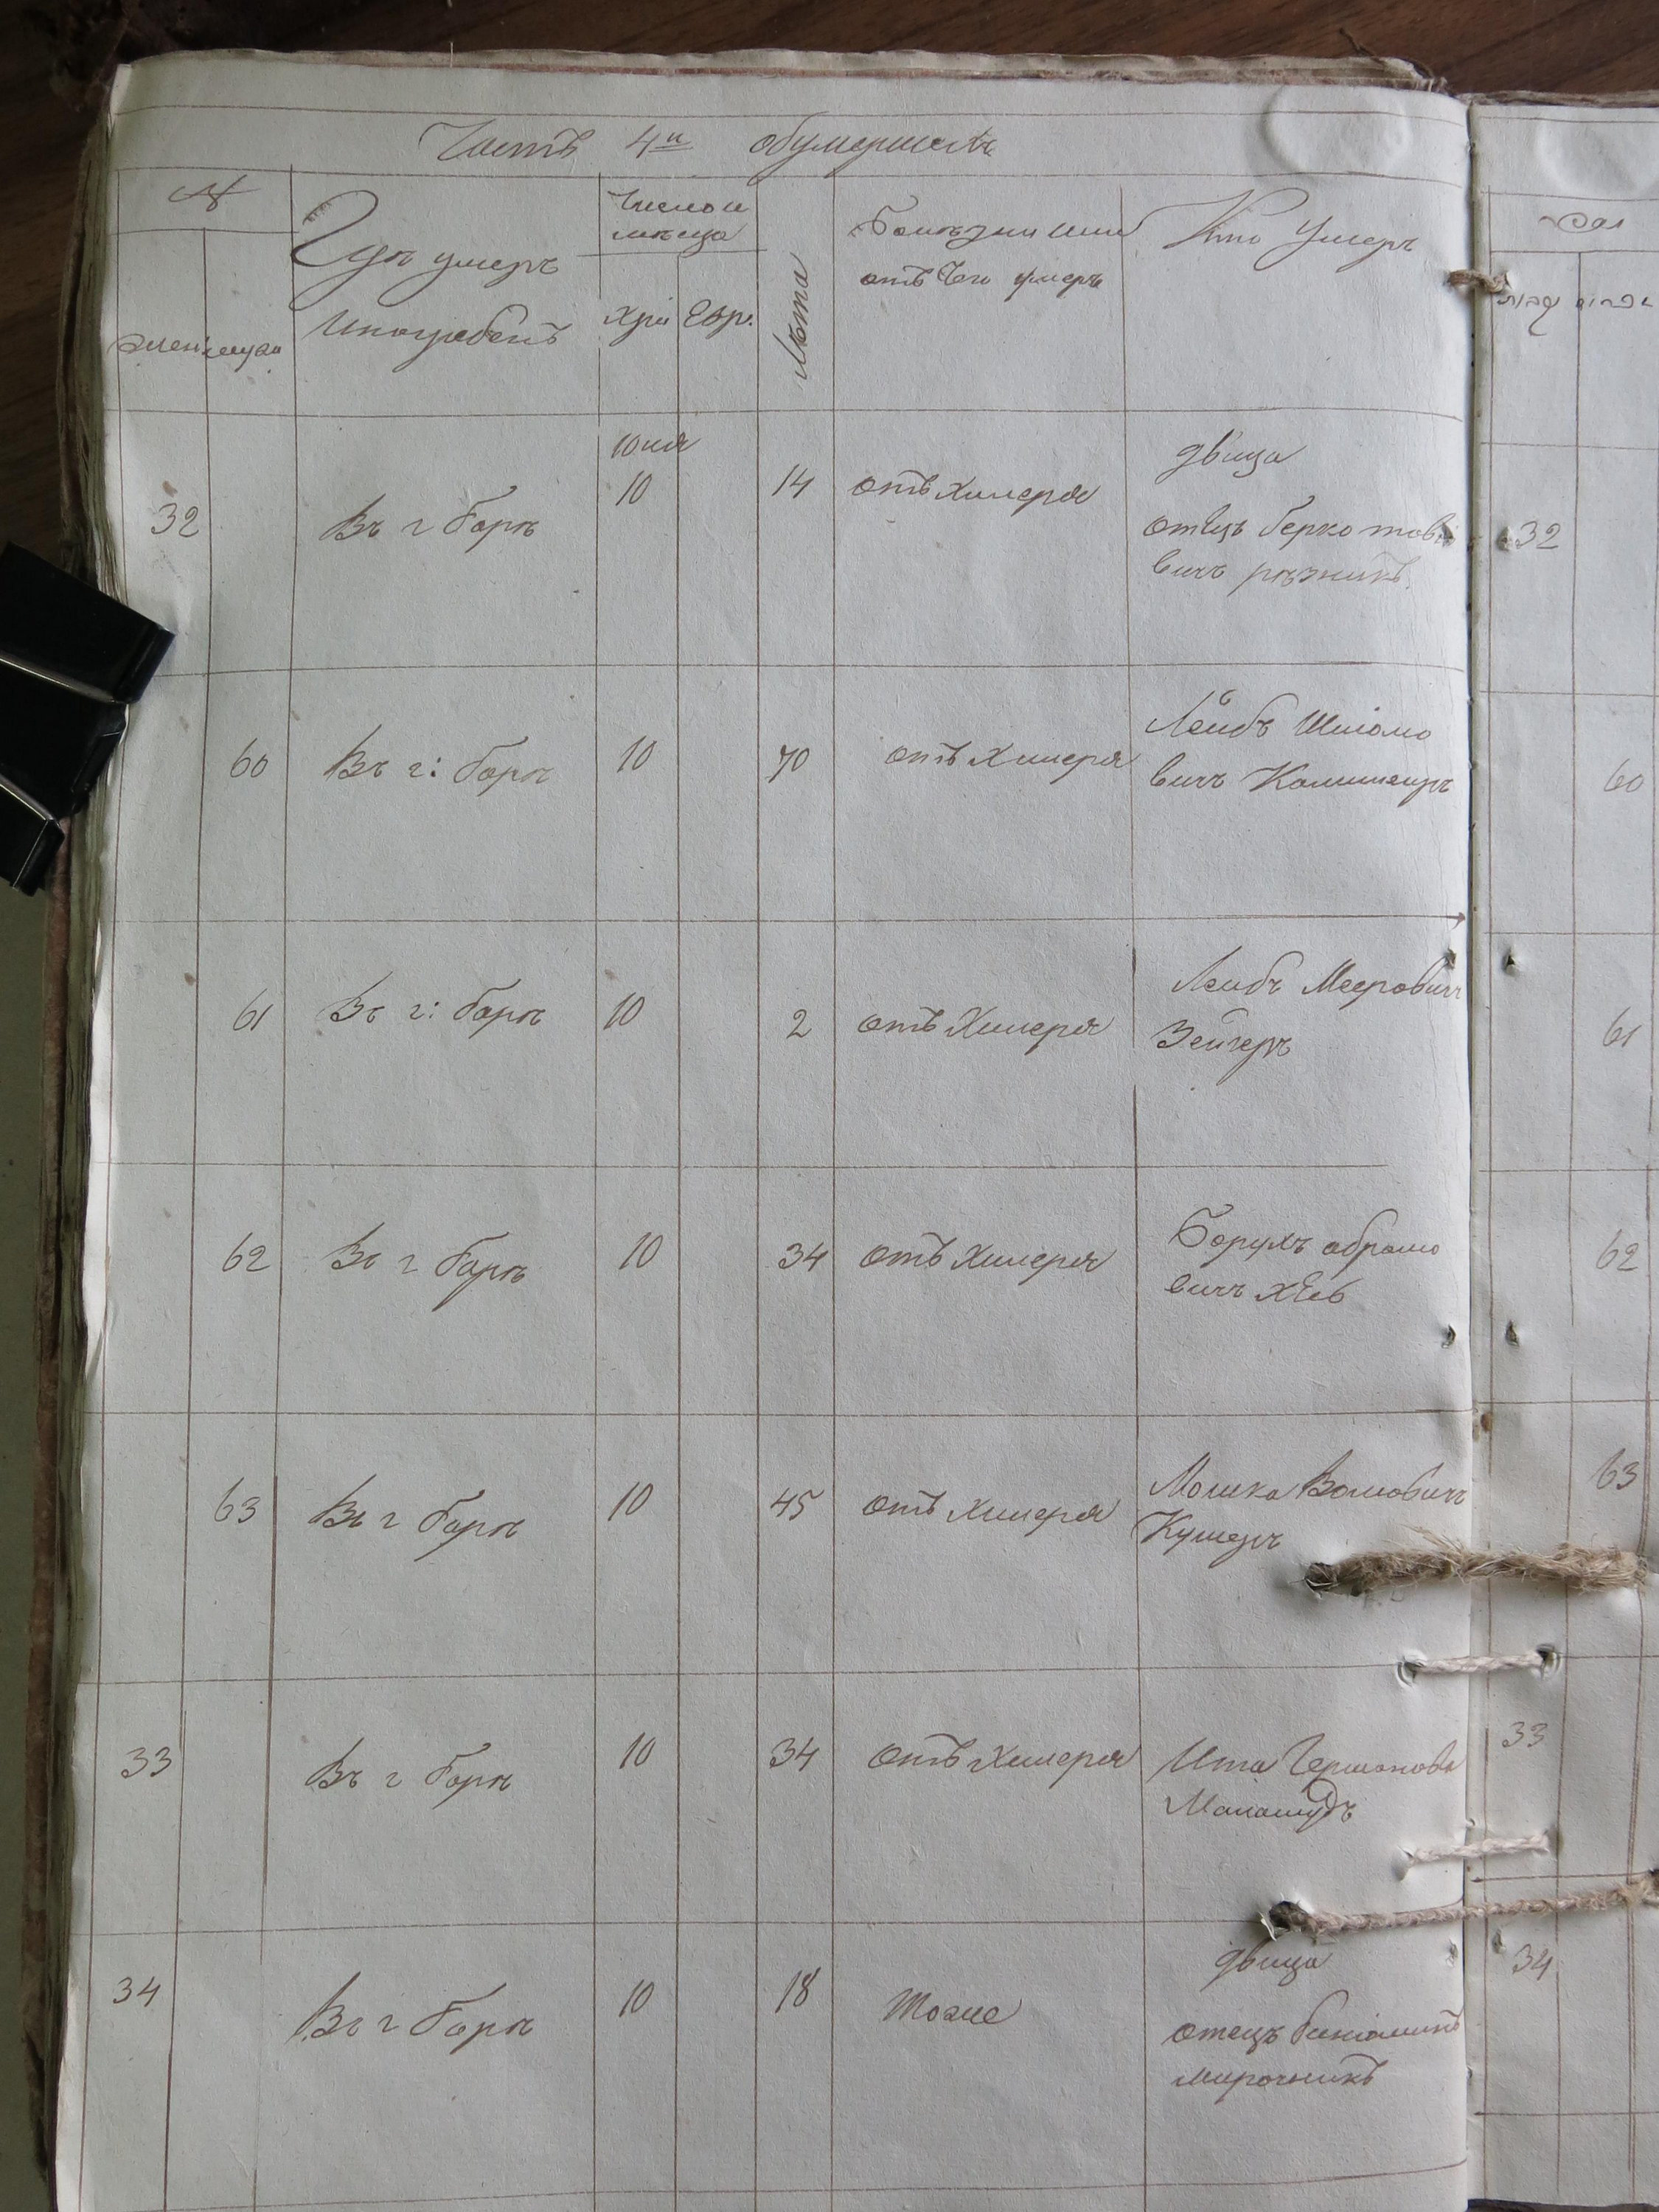 Часть 4я обумершихъ
№
Женс мужа
Гдѣ умеръ
Ипогребенъ
Число и
мѣсяца
Хри Евр.
Лѣта
Болѣзни или
отъ Чего умеръ
Кто Умеръ
июня
32 Въ г Барѣ 10 14 отъ Халеря
двица
отецъ берко тов
вичъ рѣзникъ
60 Въ г: барѣ 10 70 отъ Халеря
Леибъ Шліомо
вичъ
61 Въ г: барѣ 10 2 отъ Халеря
Леибъ Мееровичъ
Зейгеръ
62 Въ г барѣ 10 34 отъ Халеря
Борухъ абрамо
вичъ
63 Въ г барѣ 10 45 отъ Халеря
Мошко Волковичъ
Кушеръ
33 Въ г барѣ 10 34 отъ Халеря
Ита Гершонова
34 Въ г барѣ 10 18 тоже
двица
отецъ беніаминъ
мирочникъ
32
60
61
62
63
33
34